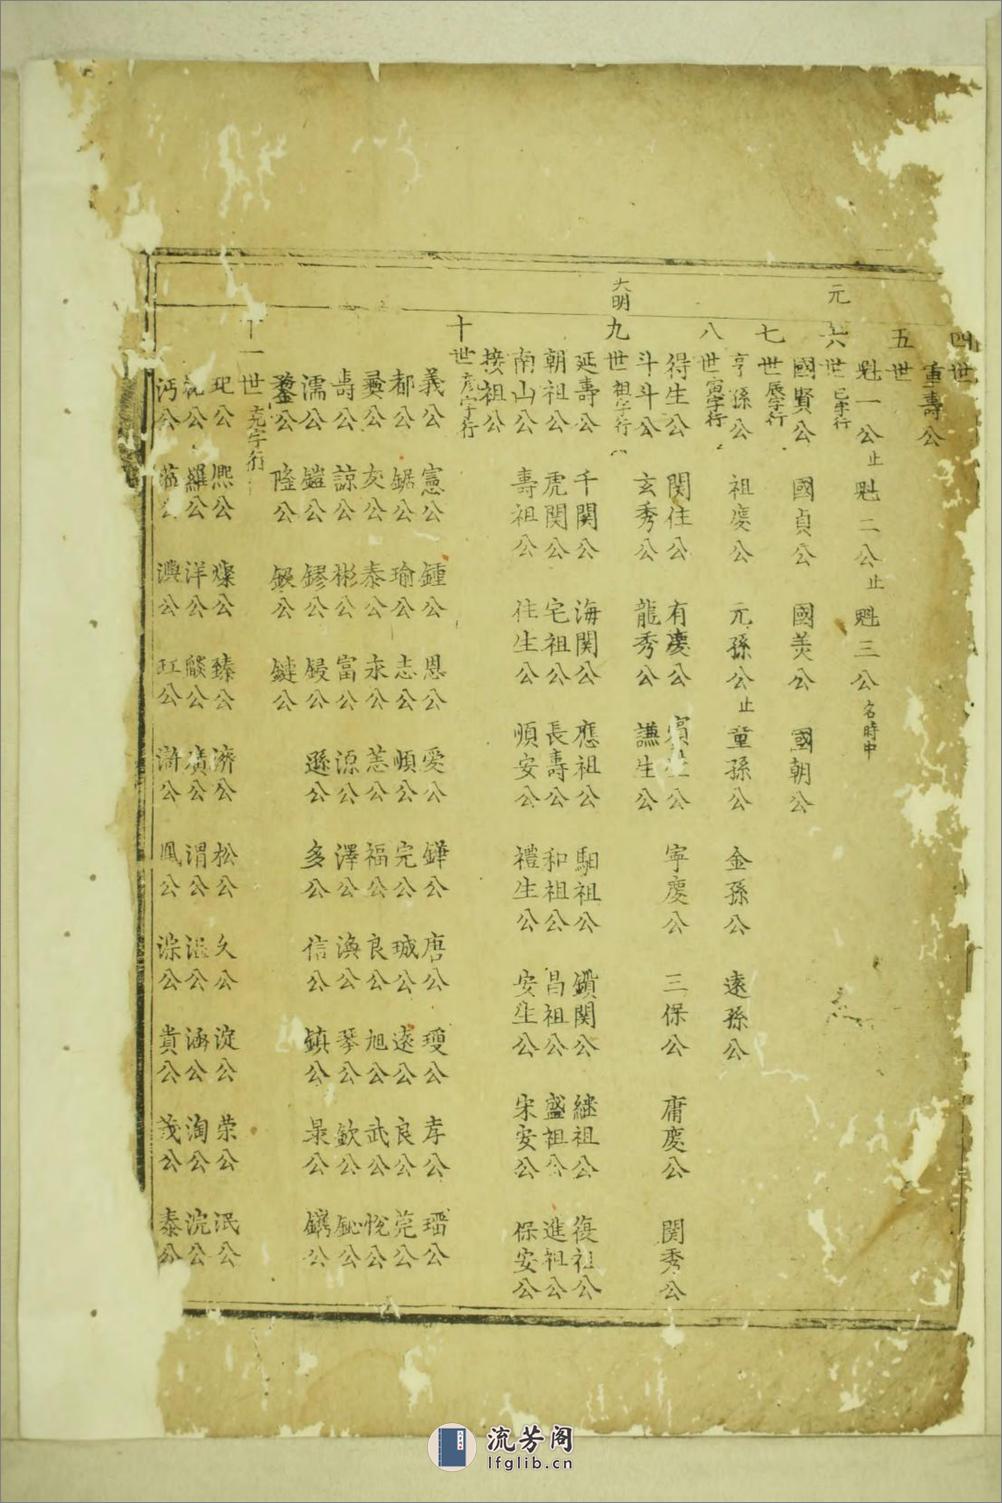 四世
重壽公
五世
魁一公止 魁二公止 魁三公名時中
元
六世
國賢公 國貞公 國美公 國朝公
七世辰字行
亨孫公 祖慶公 元孫公止 童孫公 金孫公 遠孫公
八世寅字行
得生公 関住公 有慶公 寧慶公 三保公 庸慶公 関秀公
斗斗公 玄秀公 龍秀公 謙生公
大明
九世祖字行
延壽公 千関公 海関公 應祖公 馹祖公 鎖関公 継祖公 復祖公
朝祖公 虎関公 宅祖公 長壽公 和祖公 昌祖公 盛祖公 進祖公
南山公 壽祖公 住生公 順安公 禮生公 安生公 宋安公 保安公
接祖公
十世彦字行
義公 憲公 鍾公 恩公 愛公 鏵公 唐公 瓊公 孝公 璠公
都公 鋸公 瑜公 志公 順公 完公 珹公 遠公 良公 莞公
彛公 灰公 泰公 永公 恙公 福公 良公 旭公 武公 悅公
壽公 諒公 彬公 富公 源公 澤公 渙公 琴公 欽公
濡公 鎧公 鏐公 遜公 多公 信公 鎮公 杲公 鐫公
鏊公 隆公 鏈公
十一世充字行
公 熙公 燦公 臻公 濟公 松公 久公 淀公 荣公 泯公
公 羅公 洋公 公 廣公 渭公 公 涵公 淘公 浣公
沔公 公 澳公 公 滸公 鳳公 淙公 貴公 茂公 泰公
流芳阁
lfglib.cn